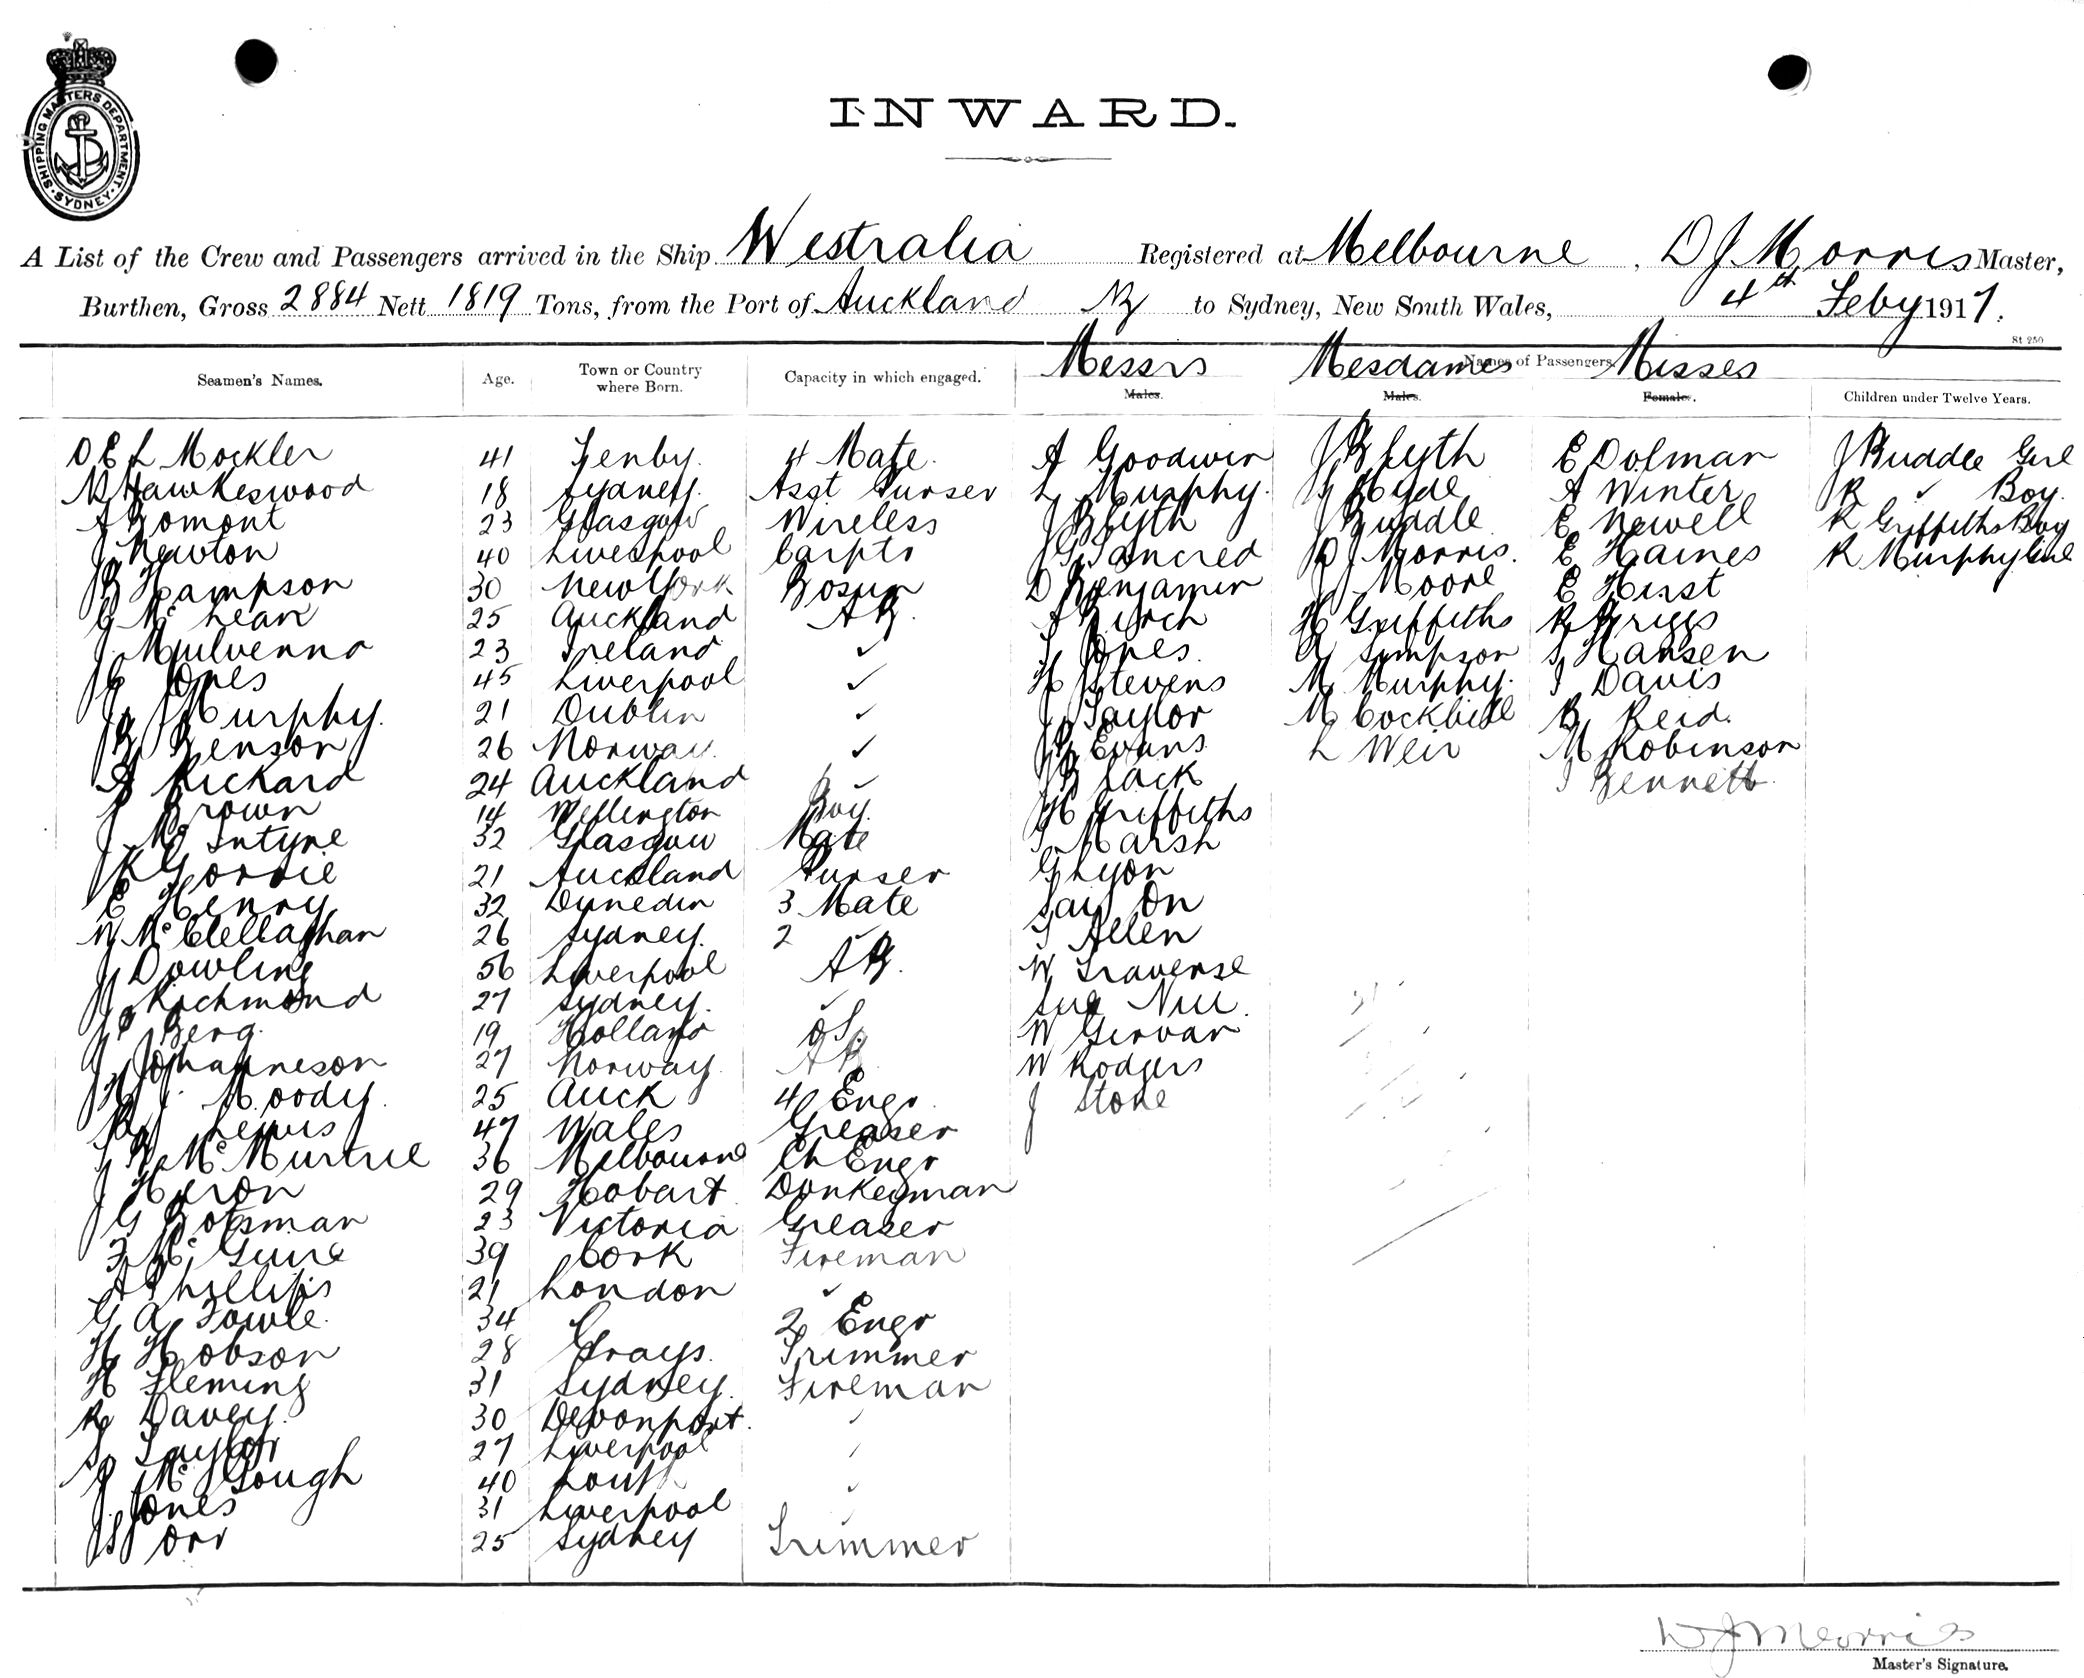 SHIPPING MASTERS DEPARTMENT. SYDNEY.
INWARD.
A List of the Crew and Passengers arrived in the Ship Westralia Registered at Melbourne, D J Morris Master,
Burthen, Gross 2884 Nett 1819 Tons, from the Port of Auckland NZ to Sydney, New South Wales, 4th Feby 1917.
St 250
Seamen's Names. Age. Town or Country where Born. Capacity in which engaged. Names of Passengers
Messrs Mesdames Misses
Males. Males. Females. Children under Twelve Years.
D E L Mockler 41 Tenby. 4 Mate. A Goodwin J Blyth E Dolman J Buddle Girl
Hawkeswood 18 Sydney. Asst Purser L Murphy. Hyde A Winter R ✓ Boy.
A Bomont 23 Glasgow Wireless J Blyth J Buddle E Newell R Griffiths Boy
J Newton 40 Liverpool Carptr J Tancred D J Morris. E Haines R Murphy Girl
J B Hampson 30 New York Bosun D Benjamin J Moore E Hirst
G McLean 25 Auckland AB. A Birch H Griffiths R Griggs
J Mulvenna 23 Ireland ✓ T Jones. A Simpson T Hansen
Jones 45 Liverpool ✓ H Stevens M Murphy. I Davis
J Murphy. 21 Dublin ✓ J Taylor M Cockbill B Reid.
B Benson 26 Norway. ✓ Evans L Weir M Robinson
A Rickard 24 Auckland ✓ J B Jack I Bennett.
J Brown 14 Wellington Boy. H Griffiths
J McIntyre 32 Glasgow Mate T Marsh
J K Gordie 21 Auckland Purser G Lyon
E Henry 32 Dunedin 3 Mate Sai On
W McClellaghan 26 Sydney. 2 ✓ T Allen
J Dowling 56 Liverpool AB. W Traverse
J Richmond 27 Sydney. ✓ Sue Nui.
J P Berg. 19 Holland OS. W Girvan
J Johanneson 27 Norway. AB W Rodgers
Moody. 25 Auck 4 Engr. J Stone
Lewis 47 Wales Greaser
McMurtrie 36 Melbourne Ch Engr
J Heron 29 Hobart Donkeyman
J G Botsman 23 Victoria Greaser
F McGuire 39 Cork Fireman
A Phillips 21 London ✓
G A Fowle. 34 2 Engr
H Hobson 28 Grays. Trimmer
H Fleming 31 Sydney. Fireman
R Davey. 30 Devonport. ✓
Taylor 27 Liverpool ✓
P McGough 40 Louth ✓
J Jones 31 Liverpool ✓
J S Orr 25 Sydney Trimmer
D J Morris
Master's Signature.